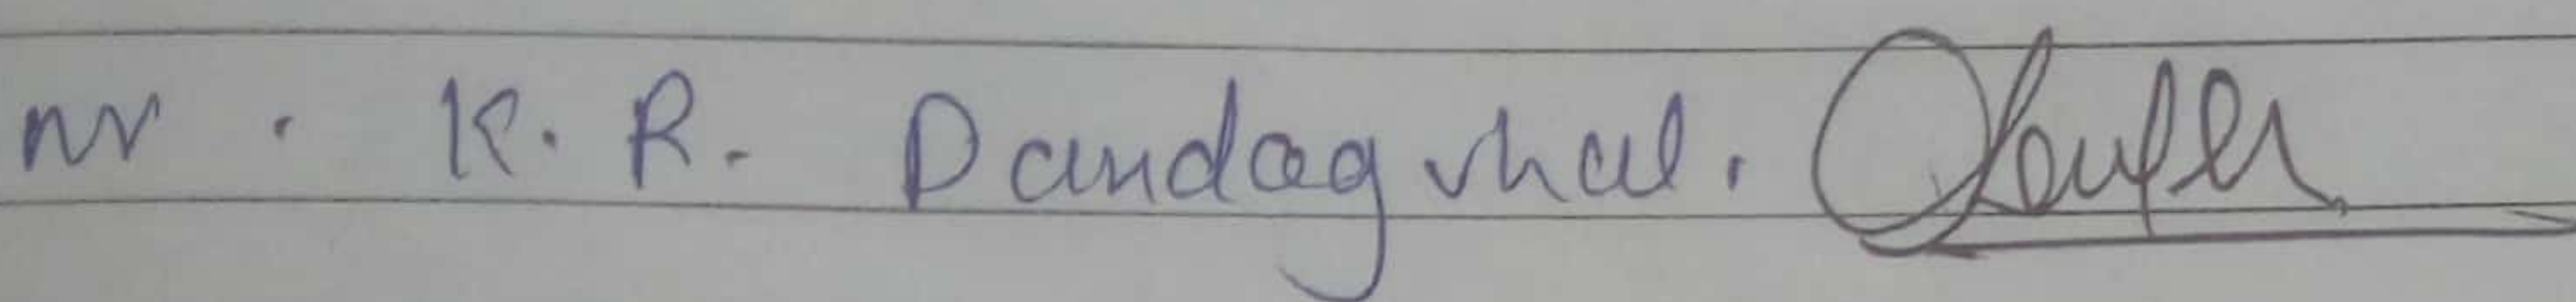 Mr. K. R. Dandagvhal.